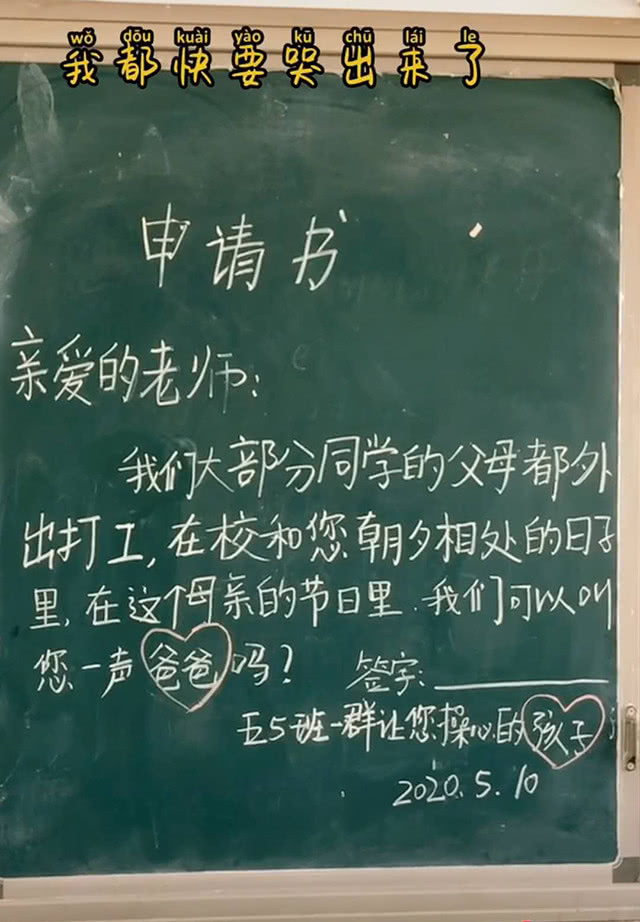 wǒ dōu kuài yào kū chū lái le
我都快要哭出来了
申请书
亲爱的老师:
我们大部分同学的父母都外
出打工,在校和您朝夕相处的日子
里,在这个母亲的节日里.我们可以叫
您一声爸爸吗?
签字:
五5班一群让您操心的孩子
2020.5.10